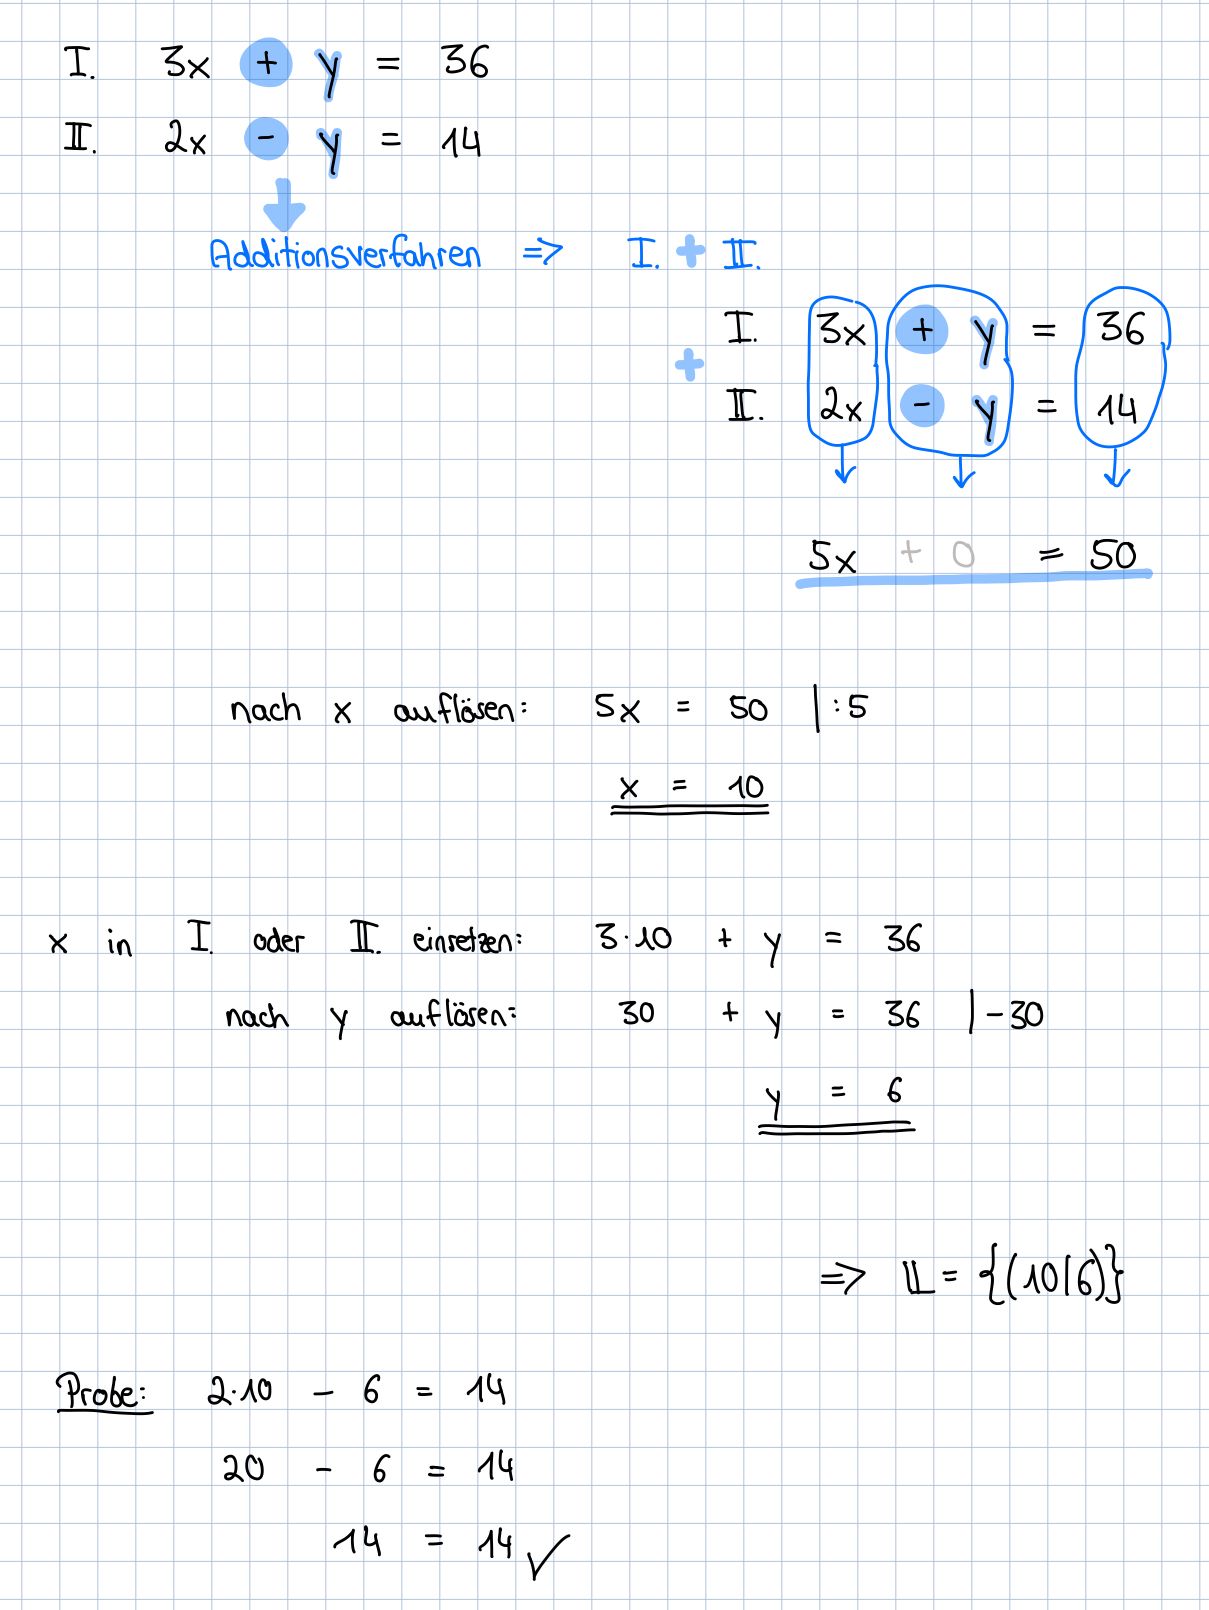 I. 3x + y = 36
II. 2x - y = 14
Additionsverfahren => I. + II.
I. 3x + y = 36
+
II. 2x - y = 14
5x + 0 = 50
nach x auflösen: 5x = 50 | :5
x = 10
x in I. oder II. einsetzen: 3·10 + y = 36
nach y auflösen: 30 + y = 36 | -30
y = 6
=> 𝕃 = {(10|6)}
Probe: 2·10 - 6 = 14
20 - 6 = 14
14 = 14 ✓